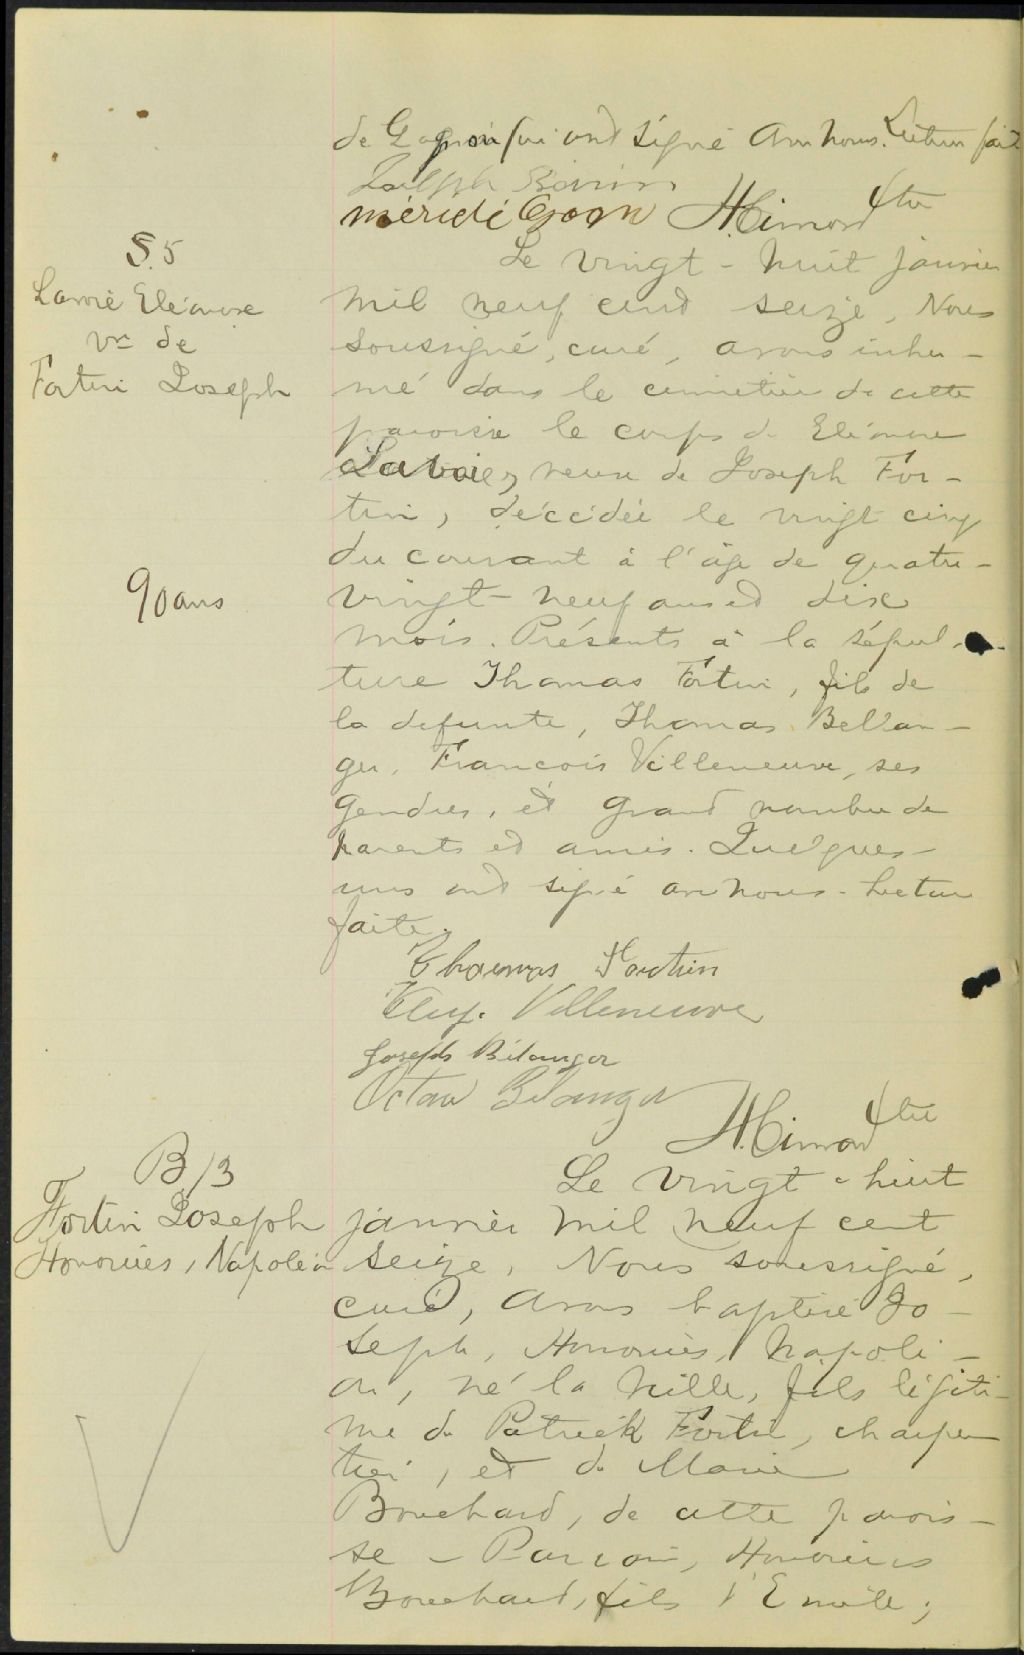 de Gagnon qui ont signé avec nous. Lecture faite
Joseph
méridé Gagnon H. Cimon Ptre
S. 5
Lavoie Eléonore
Vve de
Fortin Joseph
90 ans
Le vingt-huit janvier
mil neuf cent seize, Nous
soussigné, curé, avons inhu-
mé dans le cimetière de cette
paroisse le corps de Eléonore
Lavoie, veuve de Joseph For-
tin, décédée le vingt cinq
du courant à l'âge de quatre-
vingt-neuf ans et dix
mois. Présents à la sépul-
ture Thomas Fortin, fils de
la defunte, Thomas Bellan-
ger, Francois Villeneuve, ses
gendres, et grand nombre de
parents et amis. Quelques-
uns ont signé avec nous. Lecture
faite.
Thomas Fortin
Villeneuve
Joseph Bélanger
Octave Bélanger
H. Cimon Ptre
B/3
Fortin Joseph
Honorius, Napoléon
Le vingt-huit
janvier mil neuf cent
seize, Nous soussigné,
curé, avons baptisé Jo-
seph, Honorius, Napolé-
on, né la veille, fils légiti-
me de Patrick Fortin, charpen
tier, et de Marie
Bouchard, de cette parois-
se - Parrain, Honorius
Bouchard, fils d'Emile;